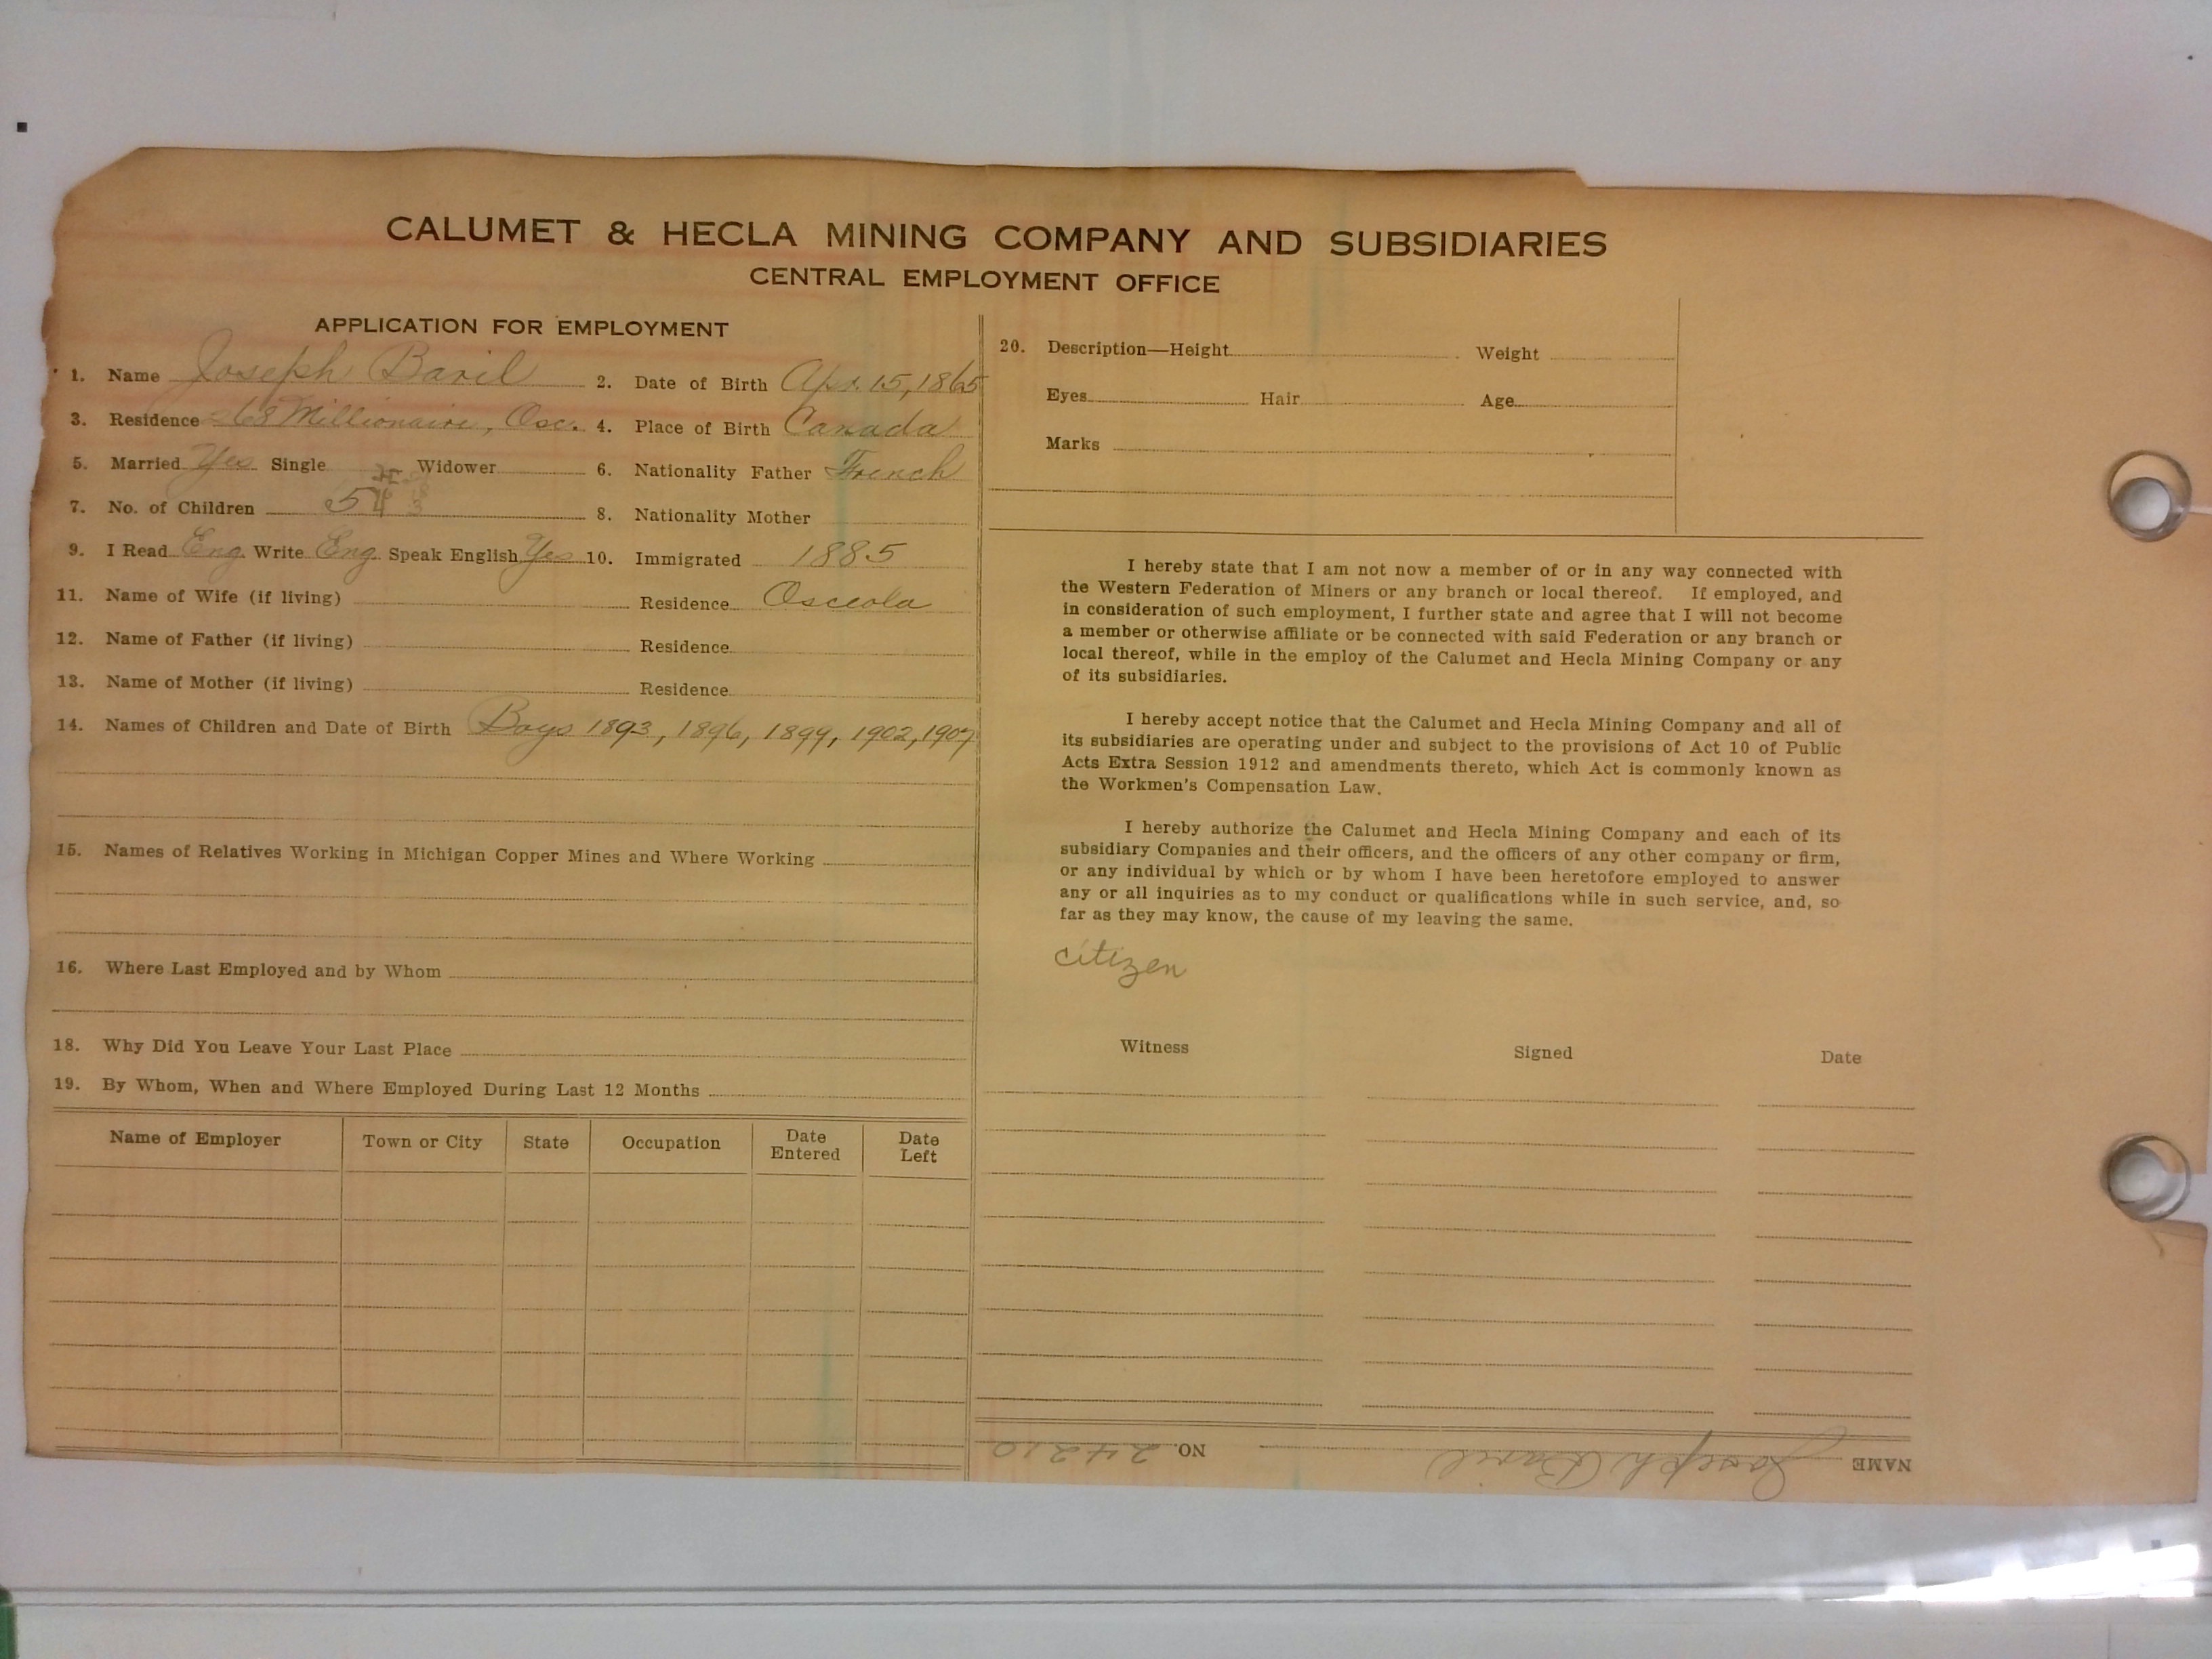 CALUMET & HECLA MINING COMPANY AND SUBSIDIARIES
CENTRAL EMPLOYMENT OFFICE
APPLICATION FOR EMPLOYMENT
1. Name Joseph Baril 2. Date of Birth Apr. 15, 1865
3. Residence 68 Millionaire, Osc. 4. Place of Birth Canada
5. Married Yes Single Widower 6. Nationality Father French
7. No. of Children 5 4 3 8. Nationality Mother
9. I Read Eng. Write Eng. Speak English Yes 10. Immigrated 1885
11. Name of Wife (if living) Residence Osceola
12. Name of Father (if living) Residence
13. Name of Mother (if living) Residence
14. Names of Children and Date of Birth Boys 1893, 1896, 1899, 1902, 1907
15. Names of Relatives Working in Michigan Copper Mines and Where Working
16. Where Last Employed and by Whom
18. Why Did You Leave Your Last Place
19. By Whom, When and Where Employed During Last 12 Months
Name of Employer Town or City State Occupation Date Entered Date Left
20. Description—Height Weight
Eyes Hair Age
Marks
I hereby state that I am not now a member of or in any way connected with
the Western Federation of Miners or any branch or local thereof. If employed, and
in consideration of such employment, I further state and agree that I will not become
a member or otherwise affiliate or be connected with said Federation or any branch or
local thereof, while in the employ of the Calumet and Hecla Mining Company or any
of its subsidiaries.
I hereby accept notice that the Calumet and Hecla Mining Company and all of
its subsidiaries are operating under and subject to the provisions of Act 10 of Public
Acts Extra Session 1912 and amendments thereto, which Act is commonly known as
the Workmen's Compensation Law.
I hereby authorize the Calumet and Hecla Mining Company and each of its
subsidiary Companies and their officers, and the officers of any other company or firm,
or any individual by which or by whom I have been heretofore employed to answer
any or all inquiries as to my conduct or qualifications while in such service, and, so
far as they may know, the cause of my leaving the same.
citizen
Witness Signed Date
NAME Joseph Baril NO. 24210